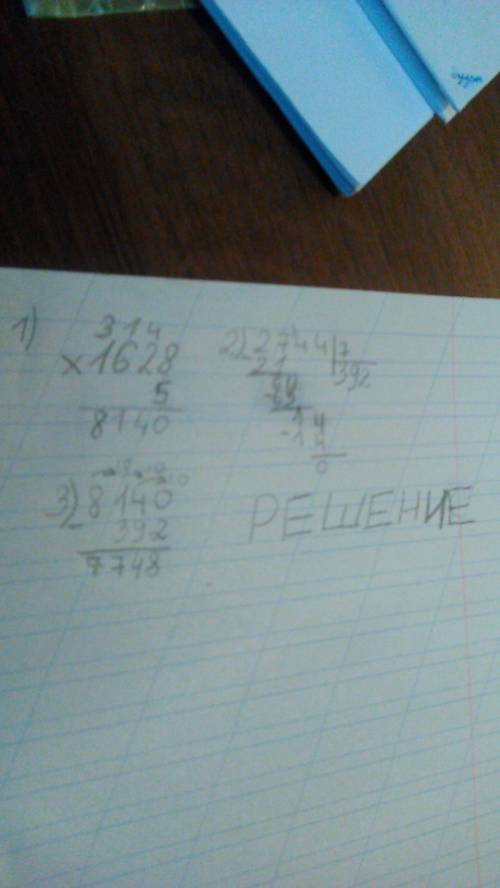 1) 314
×1628
5
8140
2) 2744 7
21 392
64
63
-14
14
0
3) 8140
392
7748
РЕШЕНИЕ